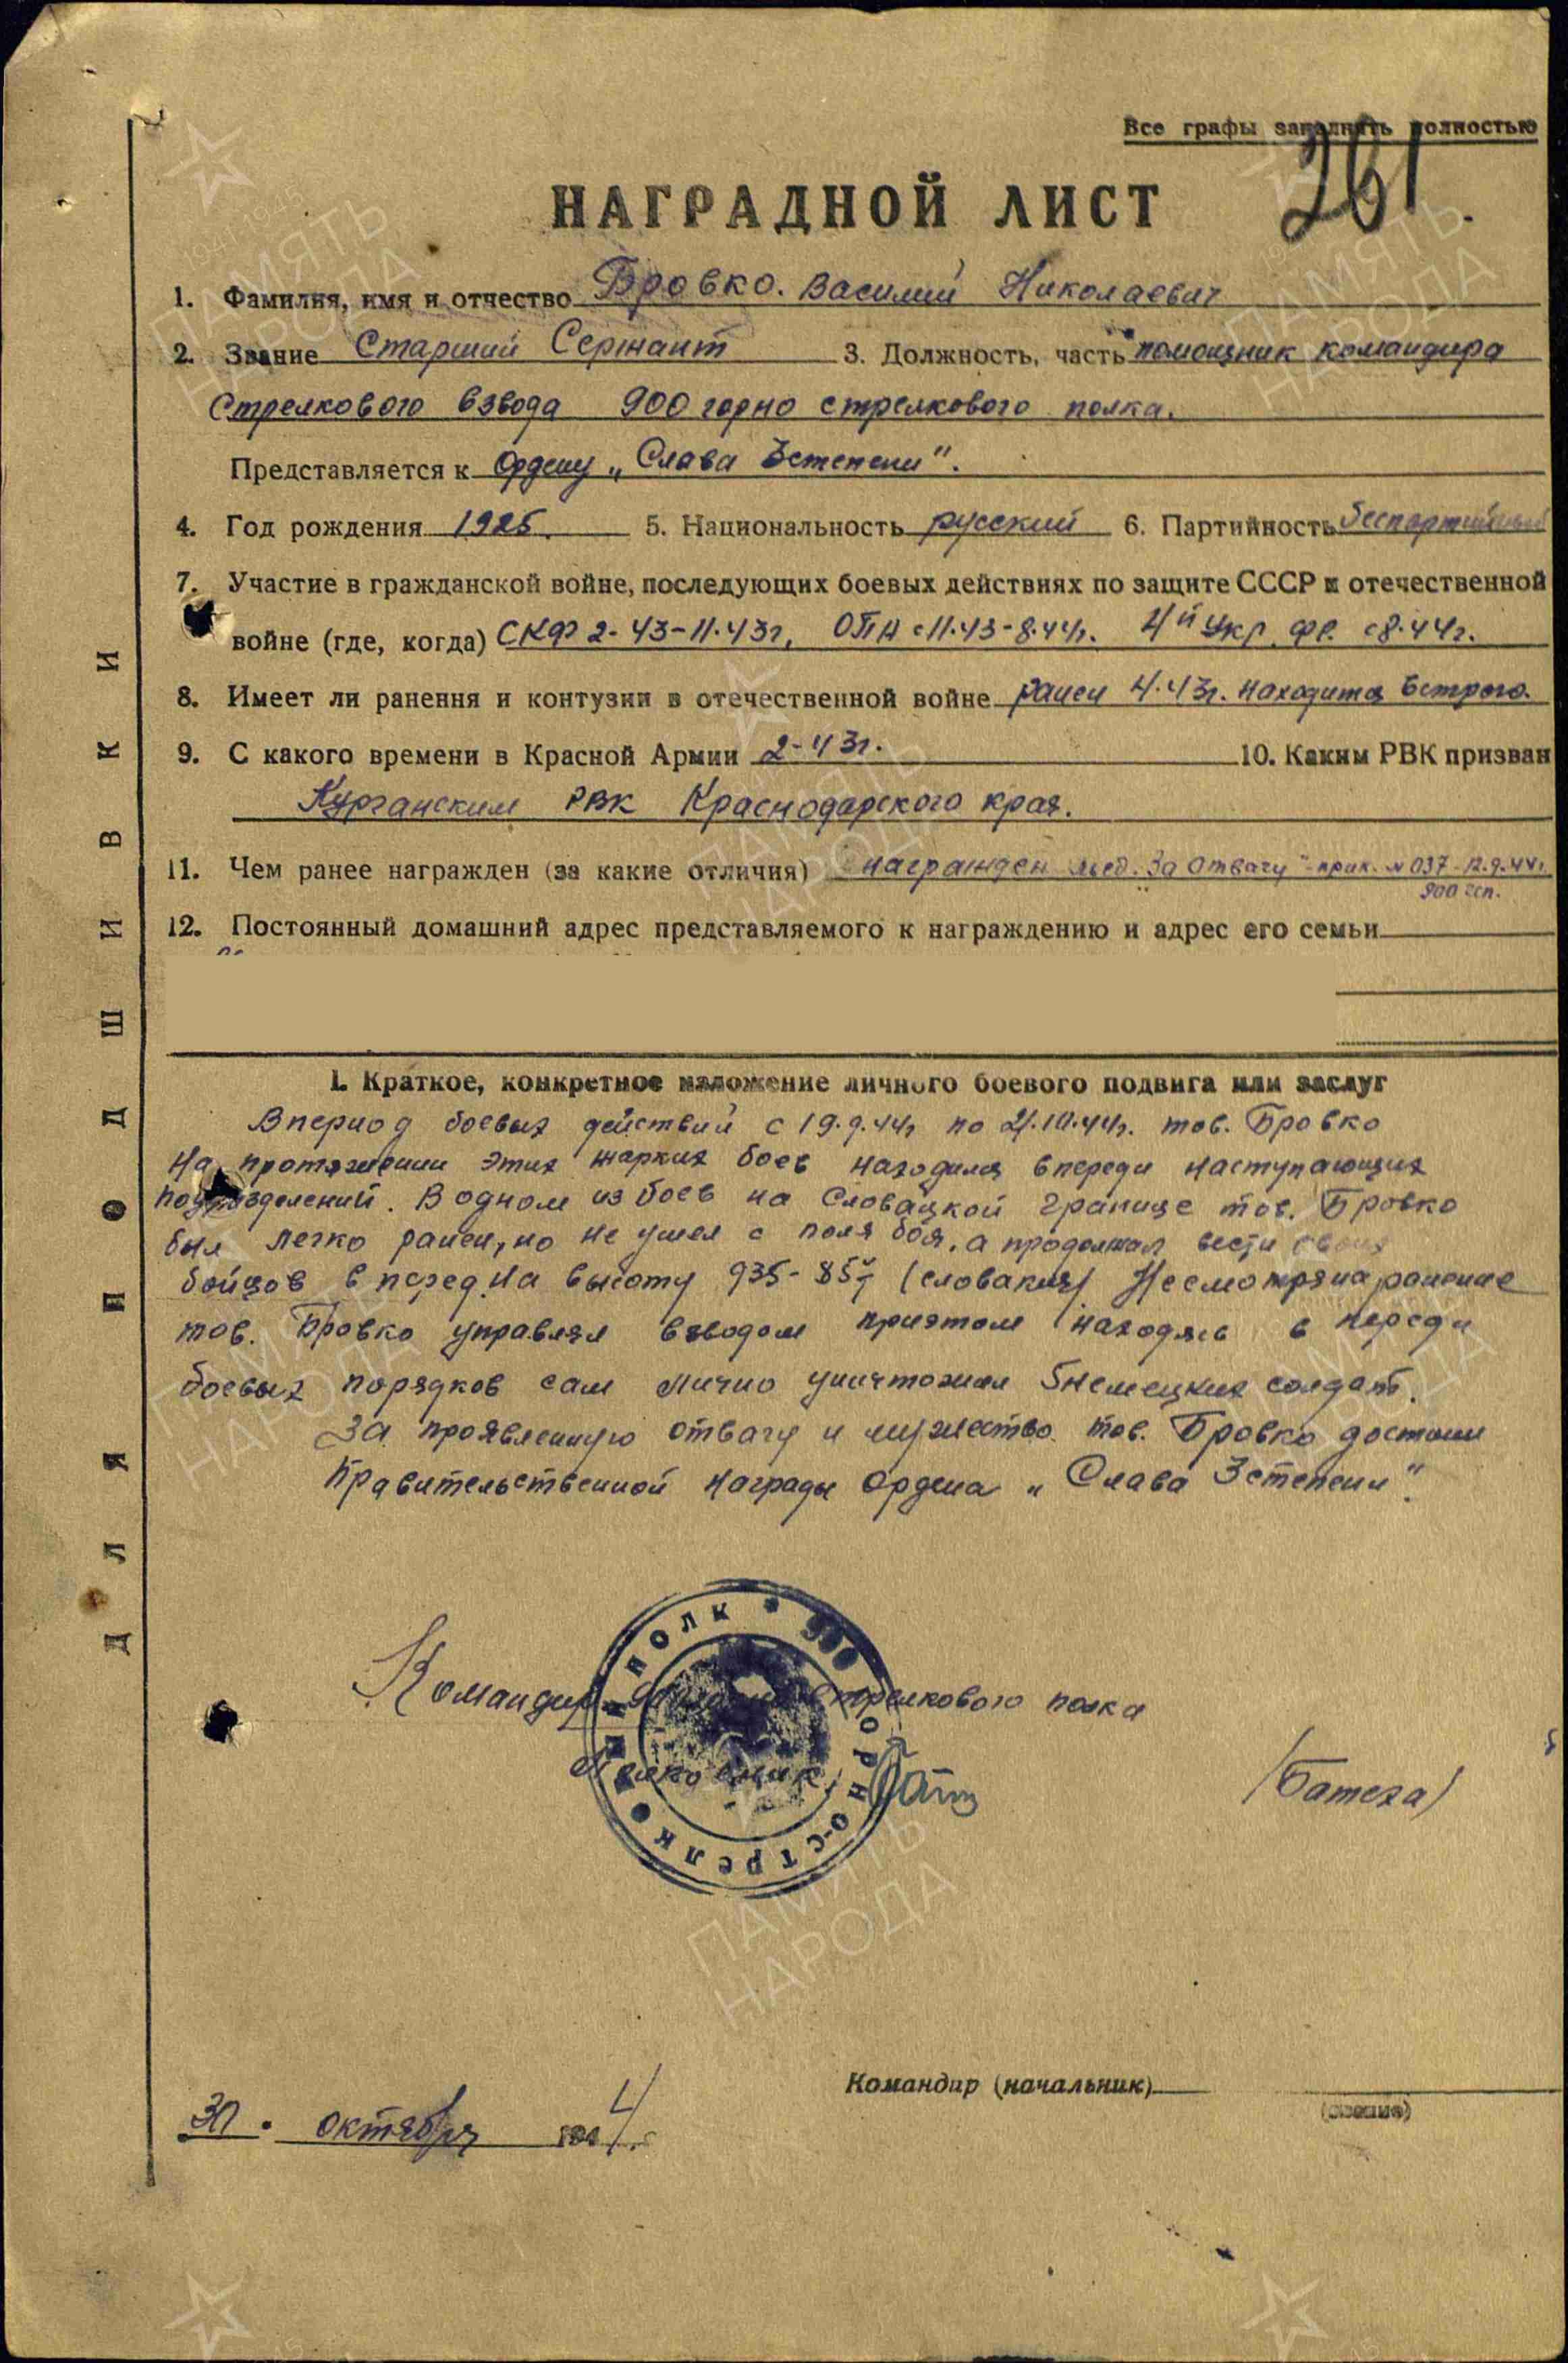 Все графы заполнять полностью
261.
НАГРАДНОЙ ЛИСТ
1. Фамилия, имя и отчество Бровко. Василий Николаевич
2. Звание Старший Сержант 3. Должность, часть помощник командира
Стрелкового взвода 900 горно стрелкового полка.
Представляется к Ордену „Слава 3степени".
4. Год рождения 1925. 5. Национальность русский 6. Партийность беспартийный
7. Участие в гражданской войне, последующих боевых действиях по защите СССР и отечественной
войне (где, когда) СКФ 2-43-11.43г, ОПА с 11.43-8.44г. 4й Укр. фр. с 8.44г.
8. Имеет ли ранения и контузии в отечественной войне ранен 4.43г. находится встрою.
9. С какого времени в Красной Армии 2-43г. 10. Каким РВК призван
Курганским РВК Краснодарского края.
11. Чем ранее награжден (за какие отличия) награжден мед. За отвагу"-прик. № 037-12.9.44г.
900 гсп.
12. Постоянный домашний адрес представляемого к награждению и адрес его семьи
I. Краткое, конкретное изложение личного боевого подвига или заслуг
Впериод боевых действий с 19.9.44г по 21.10.44г. тов. Бровко
На протяжении этих жарких боев находился впереди наступающих
подразделений. В одном из боев на Словацкой границе тов. Бровко
был легко ранен, но не ушел с поля боя, а продолжал вести своих
бойцов вперед на высоту 935-85 (словакия) Несмотряна ранение
тов. Бровко управлял взводом приэтом находясь в переди
боевых порядков сам лично уничтожил 5немецких солдат.
За проявленную отвагу и мужество тов. Бровко достоин
Правительственной награды Ордена „Слава 3степени".
Командир 900 горно стрелкового полка
Полковник
/Батеха/
900 ГОРНО-СТРЕЛКОВЫЙ ПОЛК *
Командир (начальник)
(звание)
30. октября 1944.
ДЛЯ ПОДШИВКИ
ПАМЯТЬ
НАРОДА